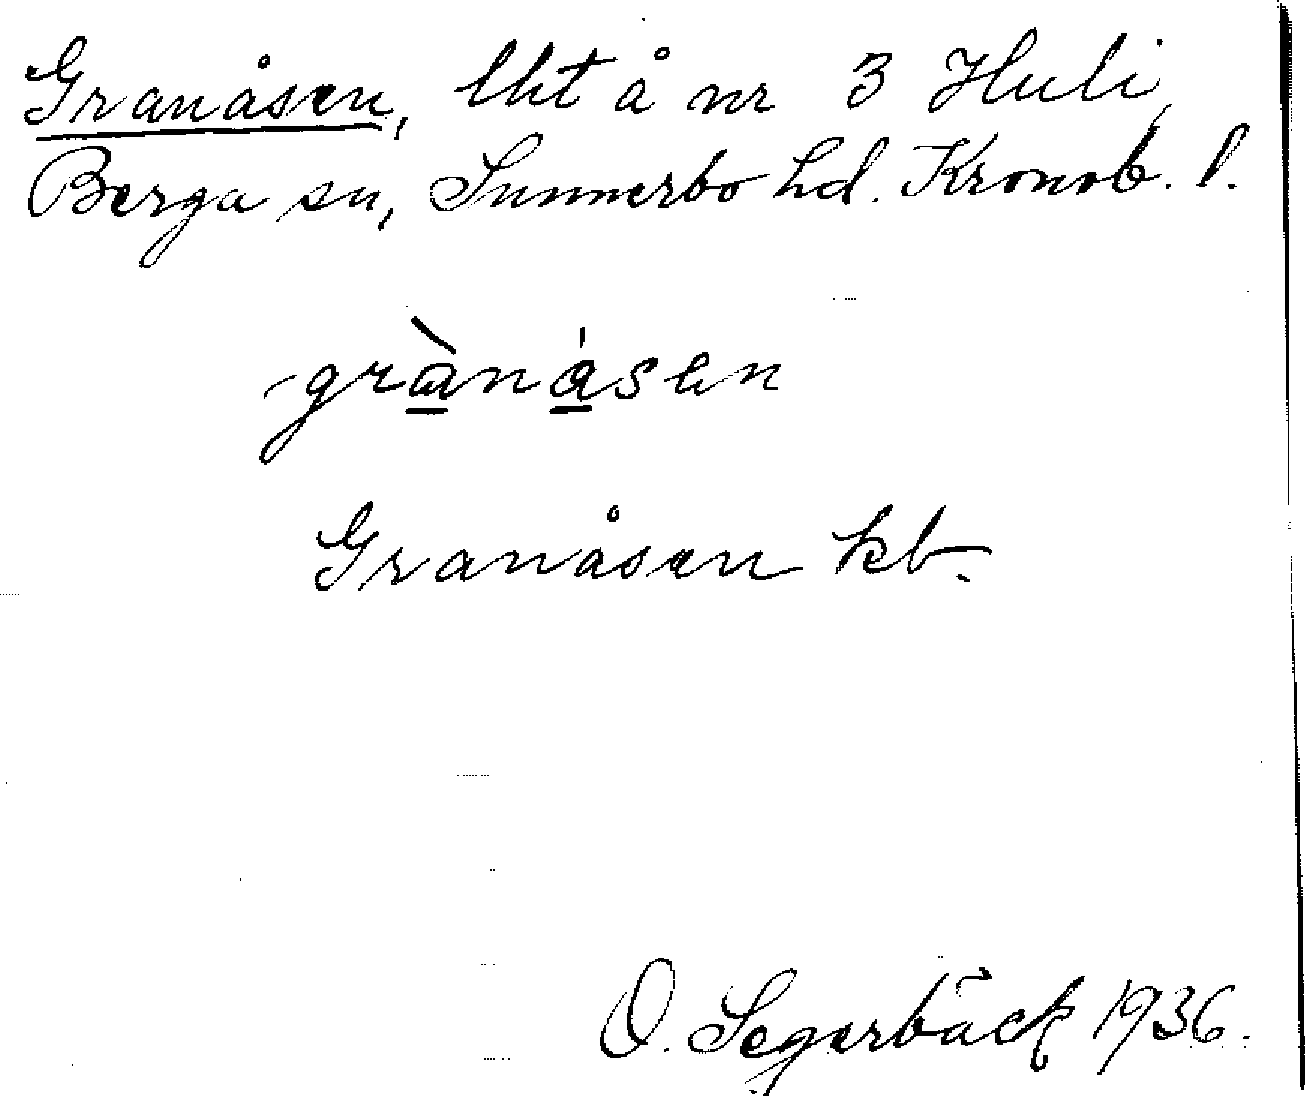 Granåsen, lht å nr 3 Huli,
Berga sn, Sunnerbo hd. Kronob. l.
grànásen
Granåsen kb.
O. Segerbäck 1936.